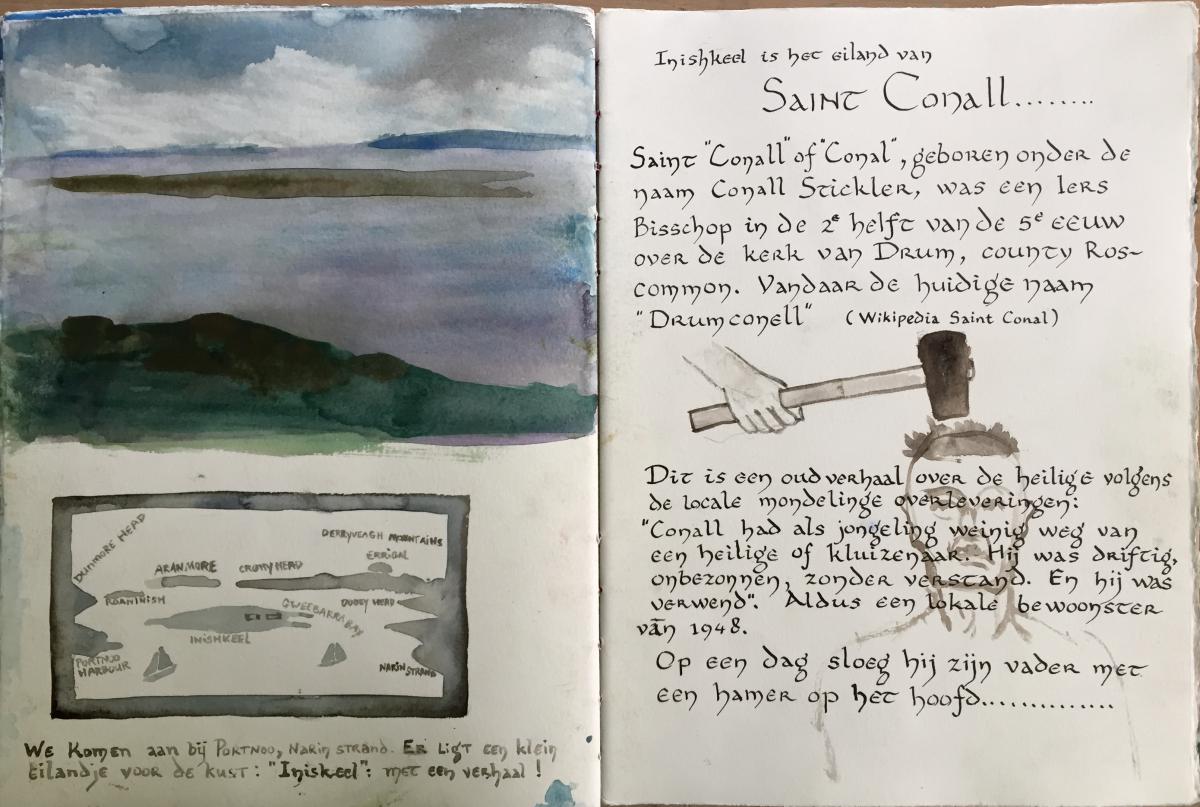 DUNMORE HEAD
DERRYVEAGH MOUNTAINS
ERRIGAL
ARANMORE
CROHY HEAD
ROANINISH
GWEEBARRA BAY
DOOEY HEAD
INISHKEEL
PORTNOO
HARBOUR
NARIN STRAND
We komen aan bij Portnoo, Narin strand. Er ligt een klein
Eilandje voor de kust: "Iniskeel": met een verhaal!
Inishkeel is het eiland van
Saint Conall........
Saint "Conall" of "Conal", geboren onder de
naam Conall Stickler, was een Iers
Bisschop in de 2e helft van de 5e eeuw
over de kerk van Drum, county Ros-
common. Vandaar de huidige naam
"Drumconell" (Wikipedia Saint Conal)
Dit is een oud verhaal over de heilige volgens
de locale mondelinge overleveringen:
"Conall had als jongeling weinig weg van
een heilige of kluizenaar. Hij was driftig,
onbezonnen, zonder verstand. En hij was
verwend". Aldus een lokale bewoonster
van 1948.
Op een dag sloeg hij zijn vader met
een hamer op het hoofd..............